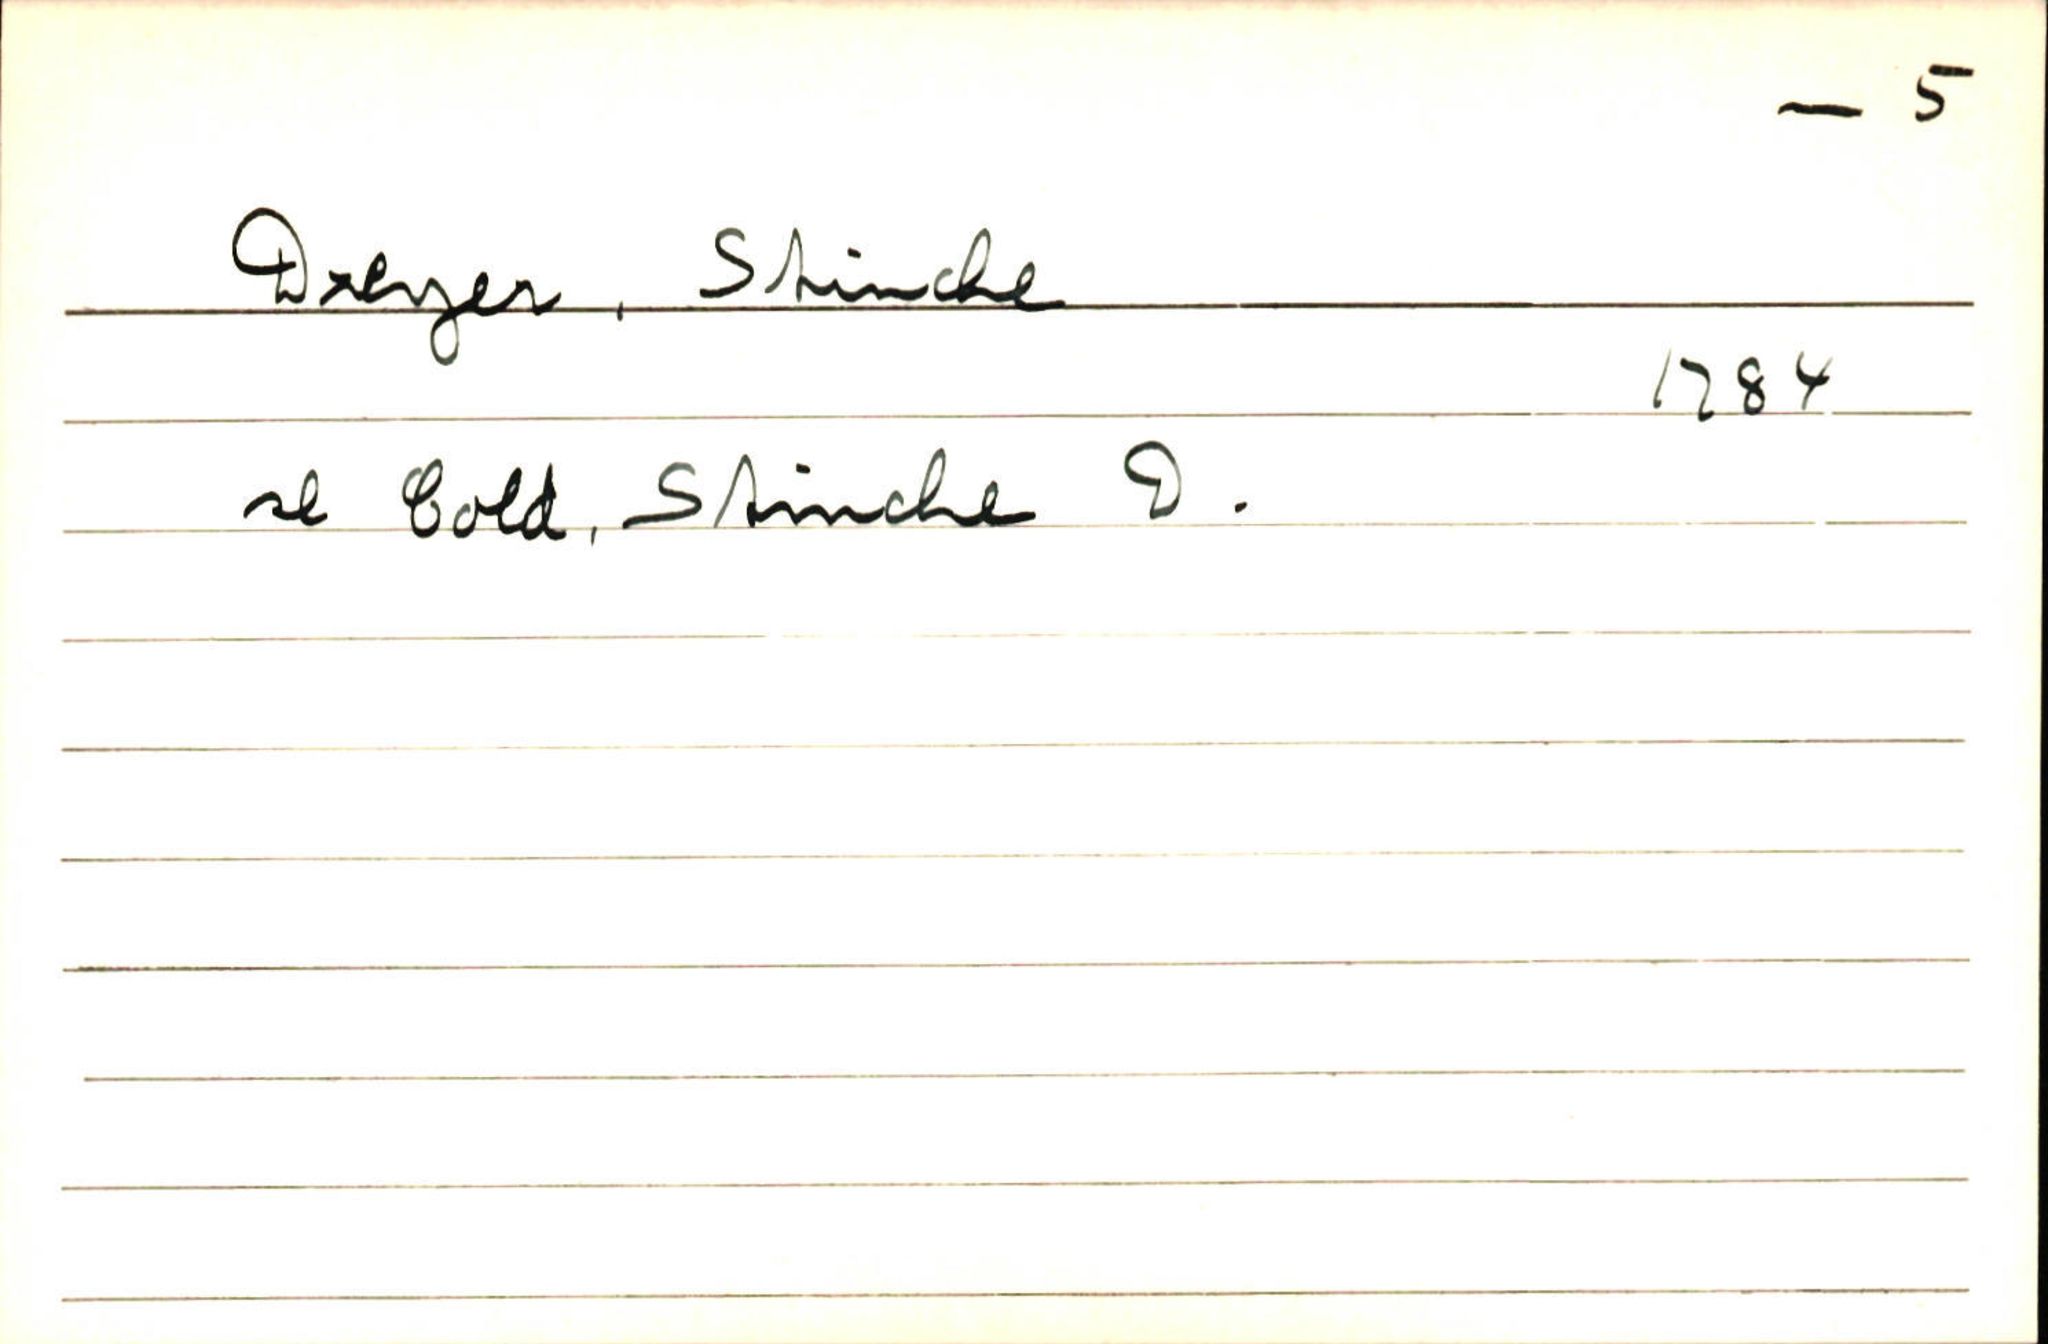 — 5
Dreyer, Stinche
1784
se Cold, Stinche D.